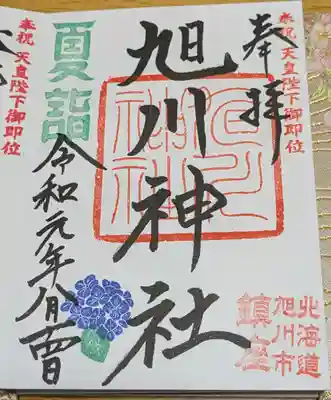 奉祝 天皇陛下御即位
奉拝
旭川神社
北海道
旭川市
鎮座
夏詣
令和元年八月
奉祝 天皇陛下御即位